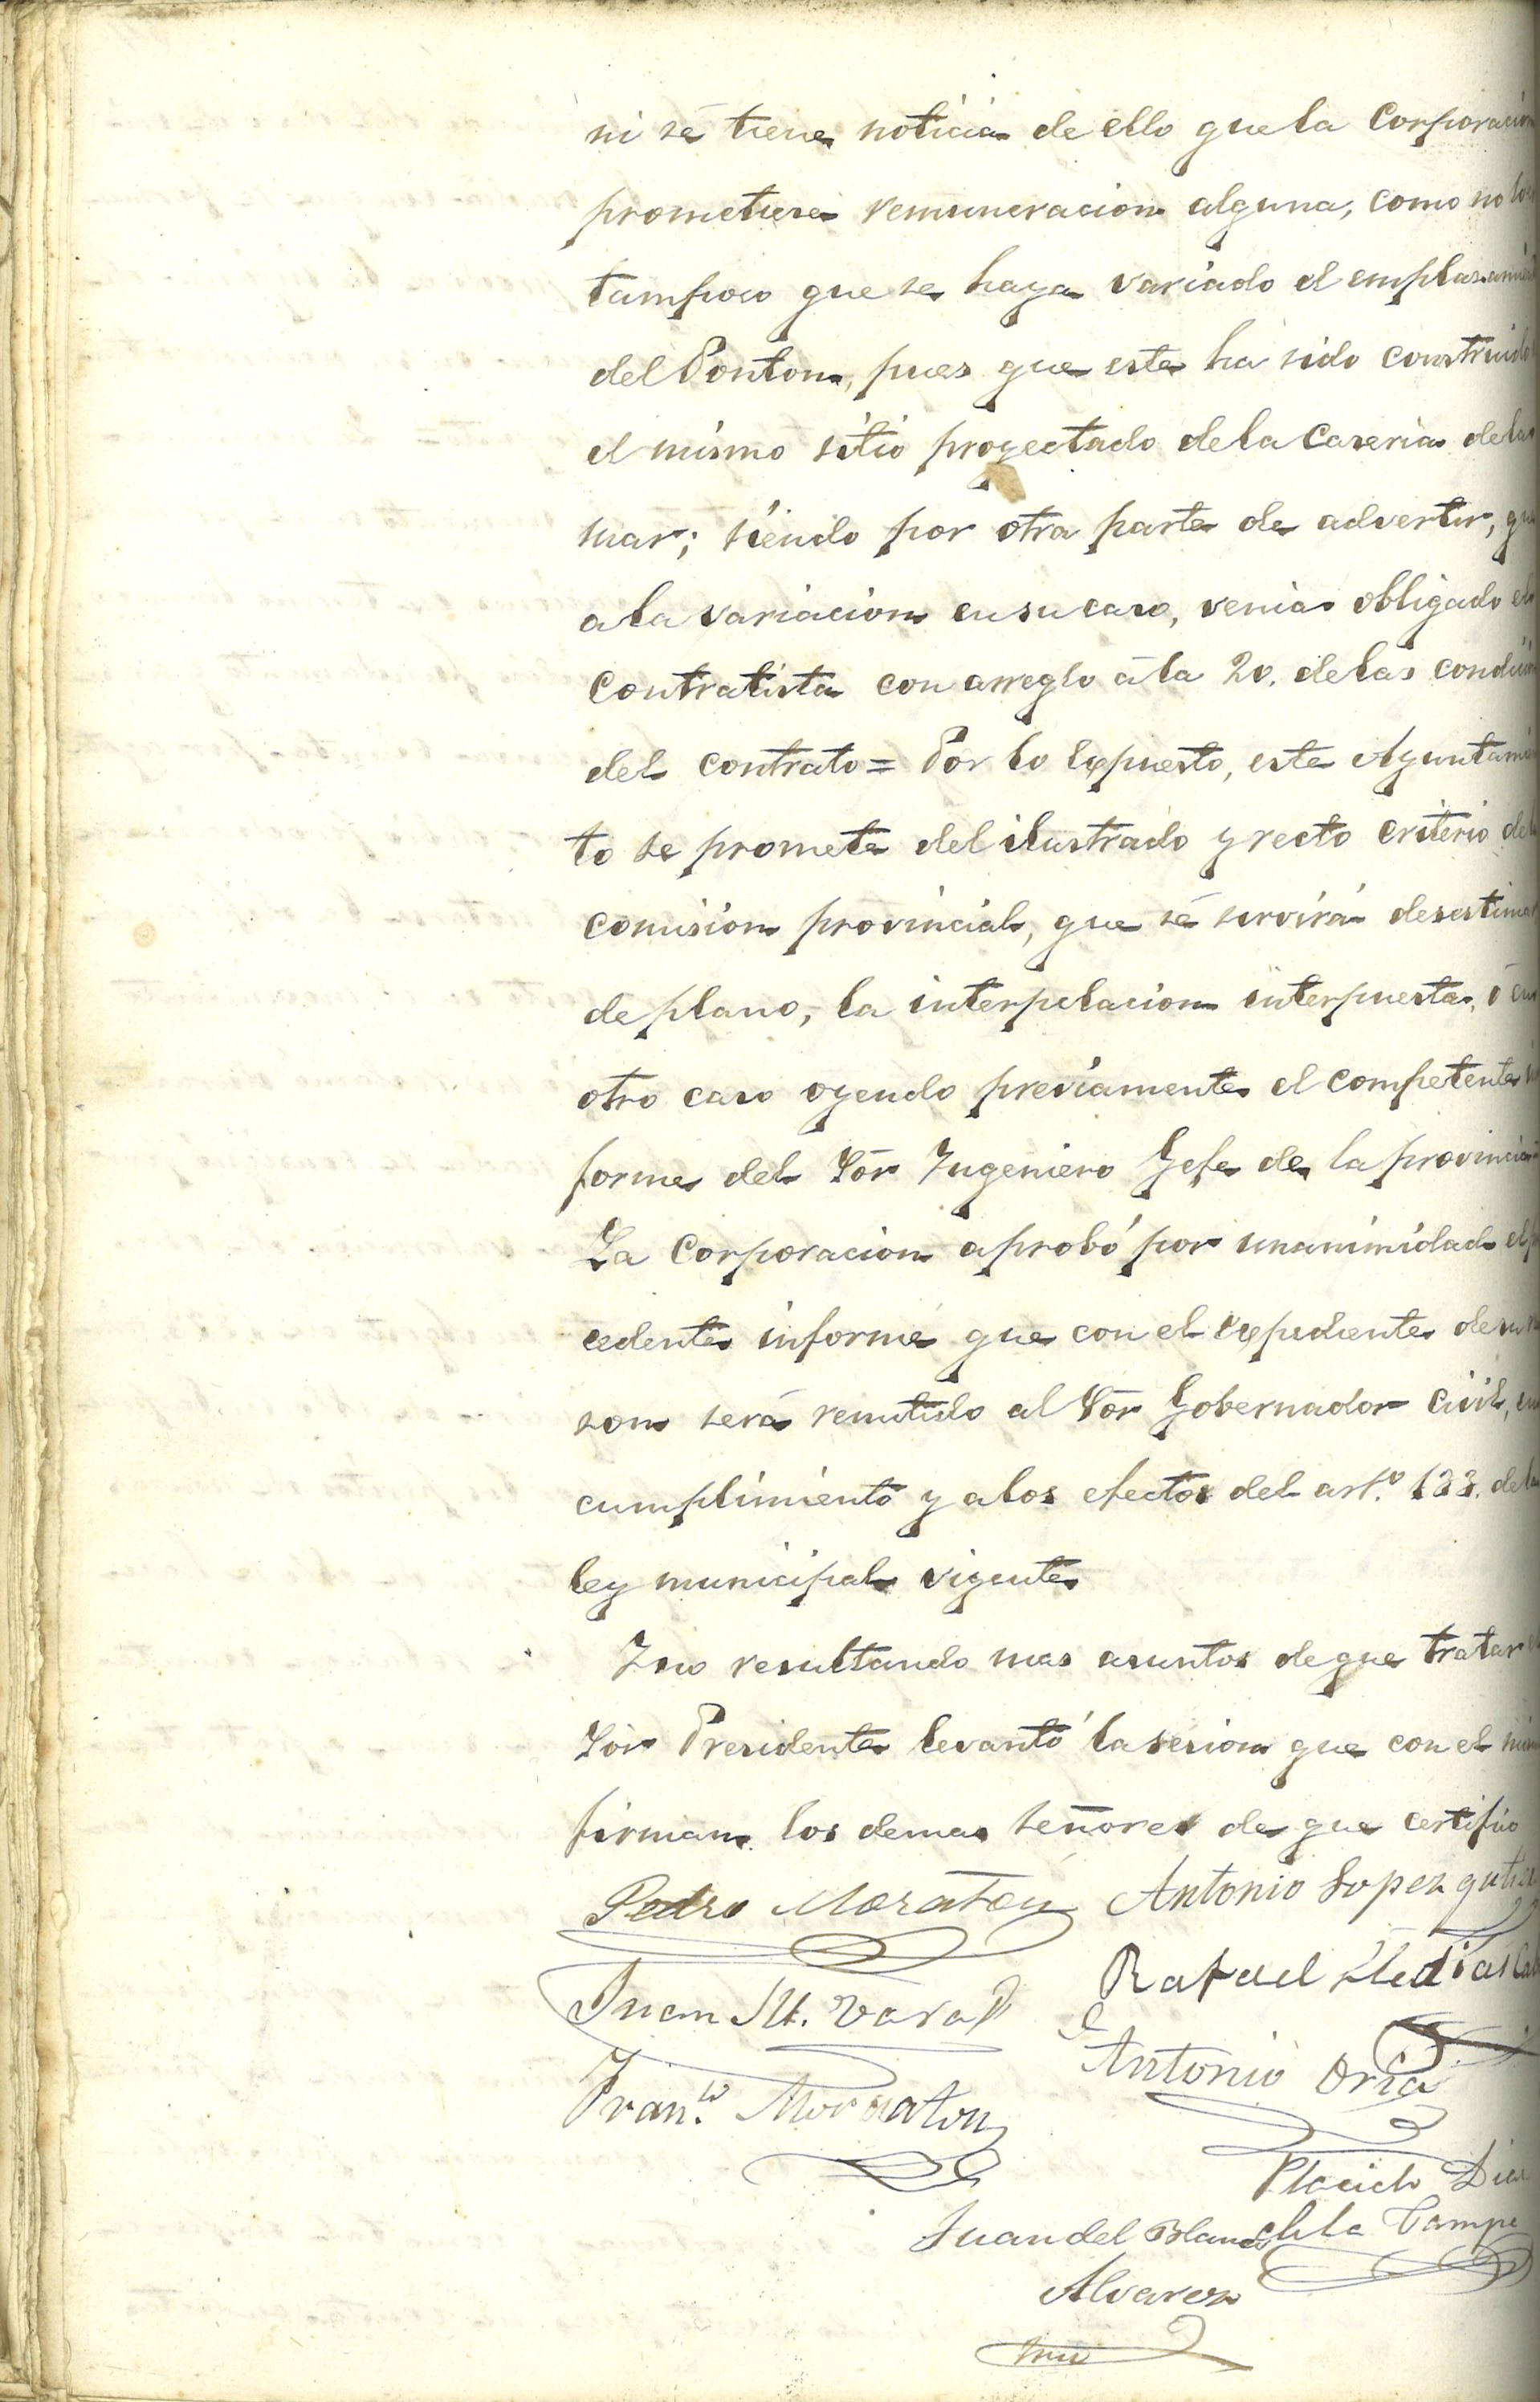 ni sé tiene noticia de ello que la Corporación
prometiese remuneracion alguna, como no lo
tampoco que se haya variado el emplazamie
del Ponton, pues que este ha sido construido
el mismo sitio proyectado de la Caseria de la
mar; siendo por otra parte de advertir, que
a la variacion en su caso, venia obligado el
contratista con arreglo á la 20. de las condici
del contrato = Por lo expuesto, este Ayuntami
to se promete del ilustrado y recto criterio de la
comision provincial, que sé servirá desestimar
de plano, la interpelacion interpuesta, ó en
otro caso oyendo previamente el competente in
forme del Sór Ingeniero Gefe de la provincia
La Corporacion aprobó por unanimidad el p
cedente informe que con el expediente de su ra
zon será remitido al Sór Gobernador Civil, en
cumplimiento y a los efectos del art.º 133. de la
ley municipal vigente
Y no resultando mas asuntos de que tratar el
Sór Presidente levantó la sesion que con el mism
firman los demas señores de que certifico
Pedro Moraton Antonio Lopez gutie
Juan M. Vara Rafael Lledias
Antonio Oria
Fran.co Morraton
Placido Dias
Juan del Blanco de la Campa
Alvarez